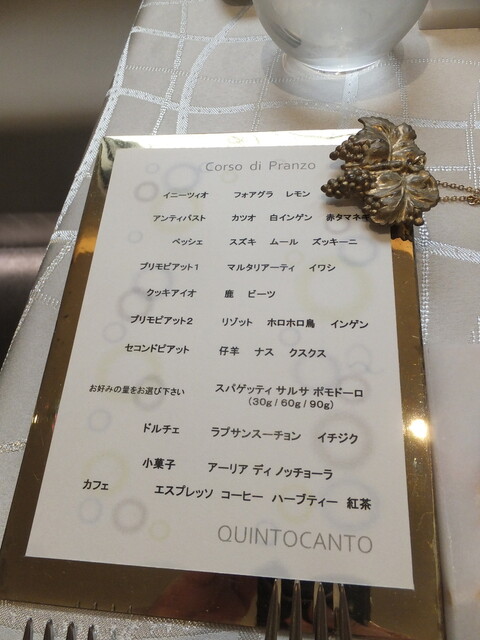 Corso di Pranzo
イニーツィオ フォアグラ レモン
アンティパスト カツオ 白インゲン 赤タマネギ
ペッシェ スズキ ムール ズッキーニ
プリモピアット1 マルタリアーティ イワシ
クッキアイオ 鹿 ビーツ
プリモピアット2 リゾット ホロホロ鳥 インゲン
セコンドピアット 仔羊 ナス クスクス
お好みの量をお選び下さい スパゲッティ サルサ ポモドーロ
(30g / 60g / 90g)
ドルチェ ラプサンスーチョン イチジク
小菓子 アーリア ディ ノッチョーラ
カフェ エスプレッソ コーヒー ハーブティー 紅茶
QUINTOCANTO